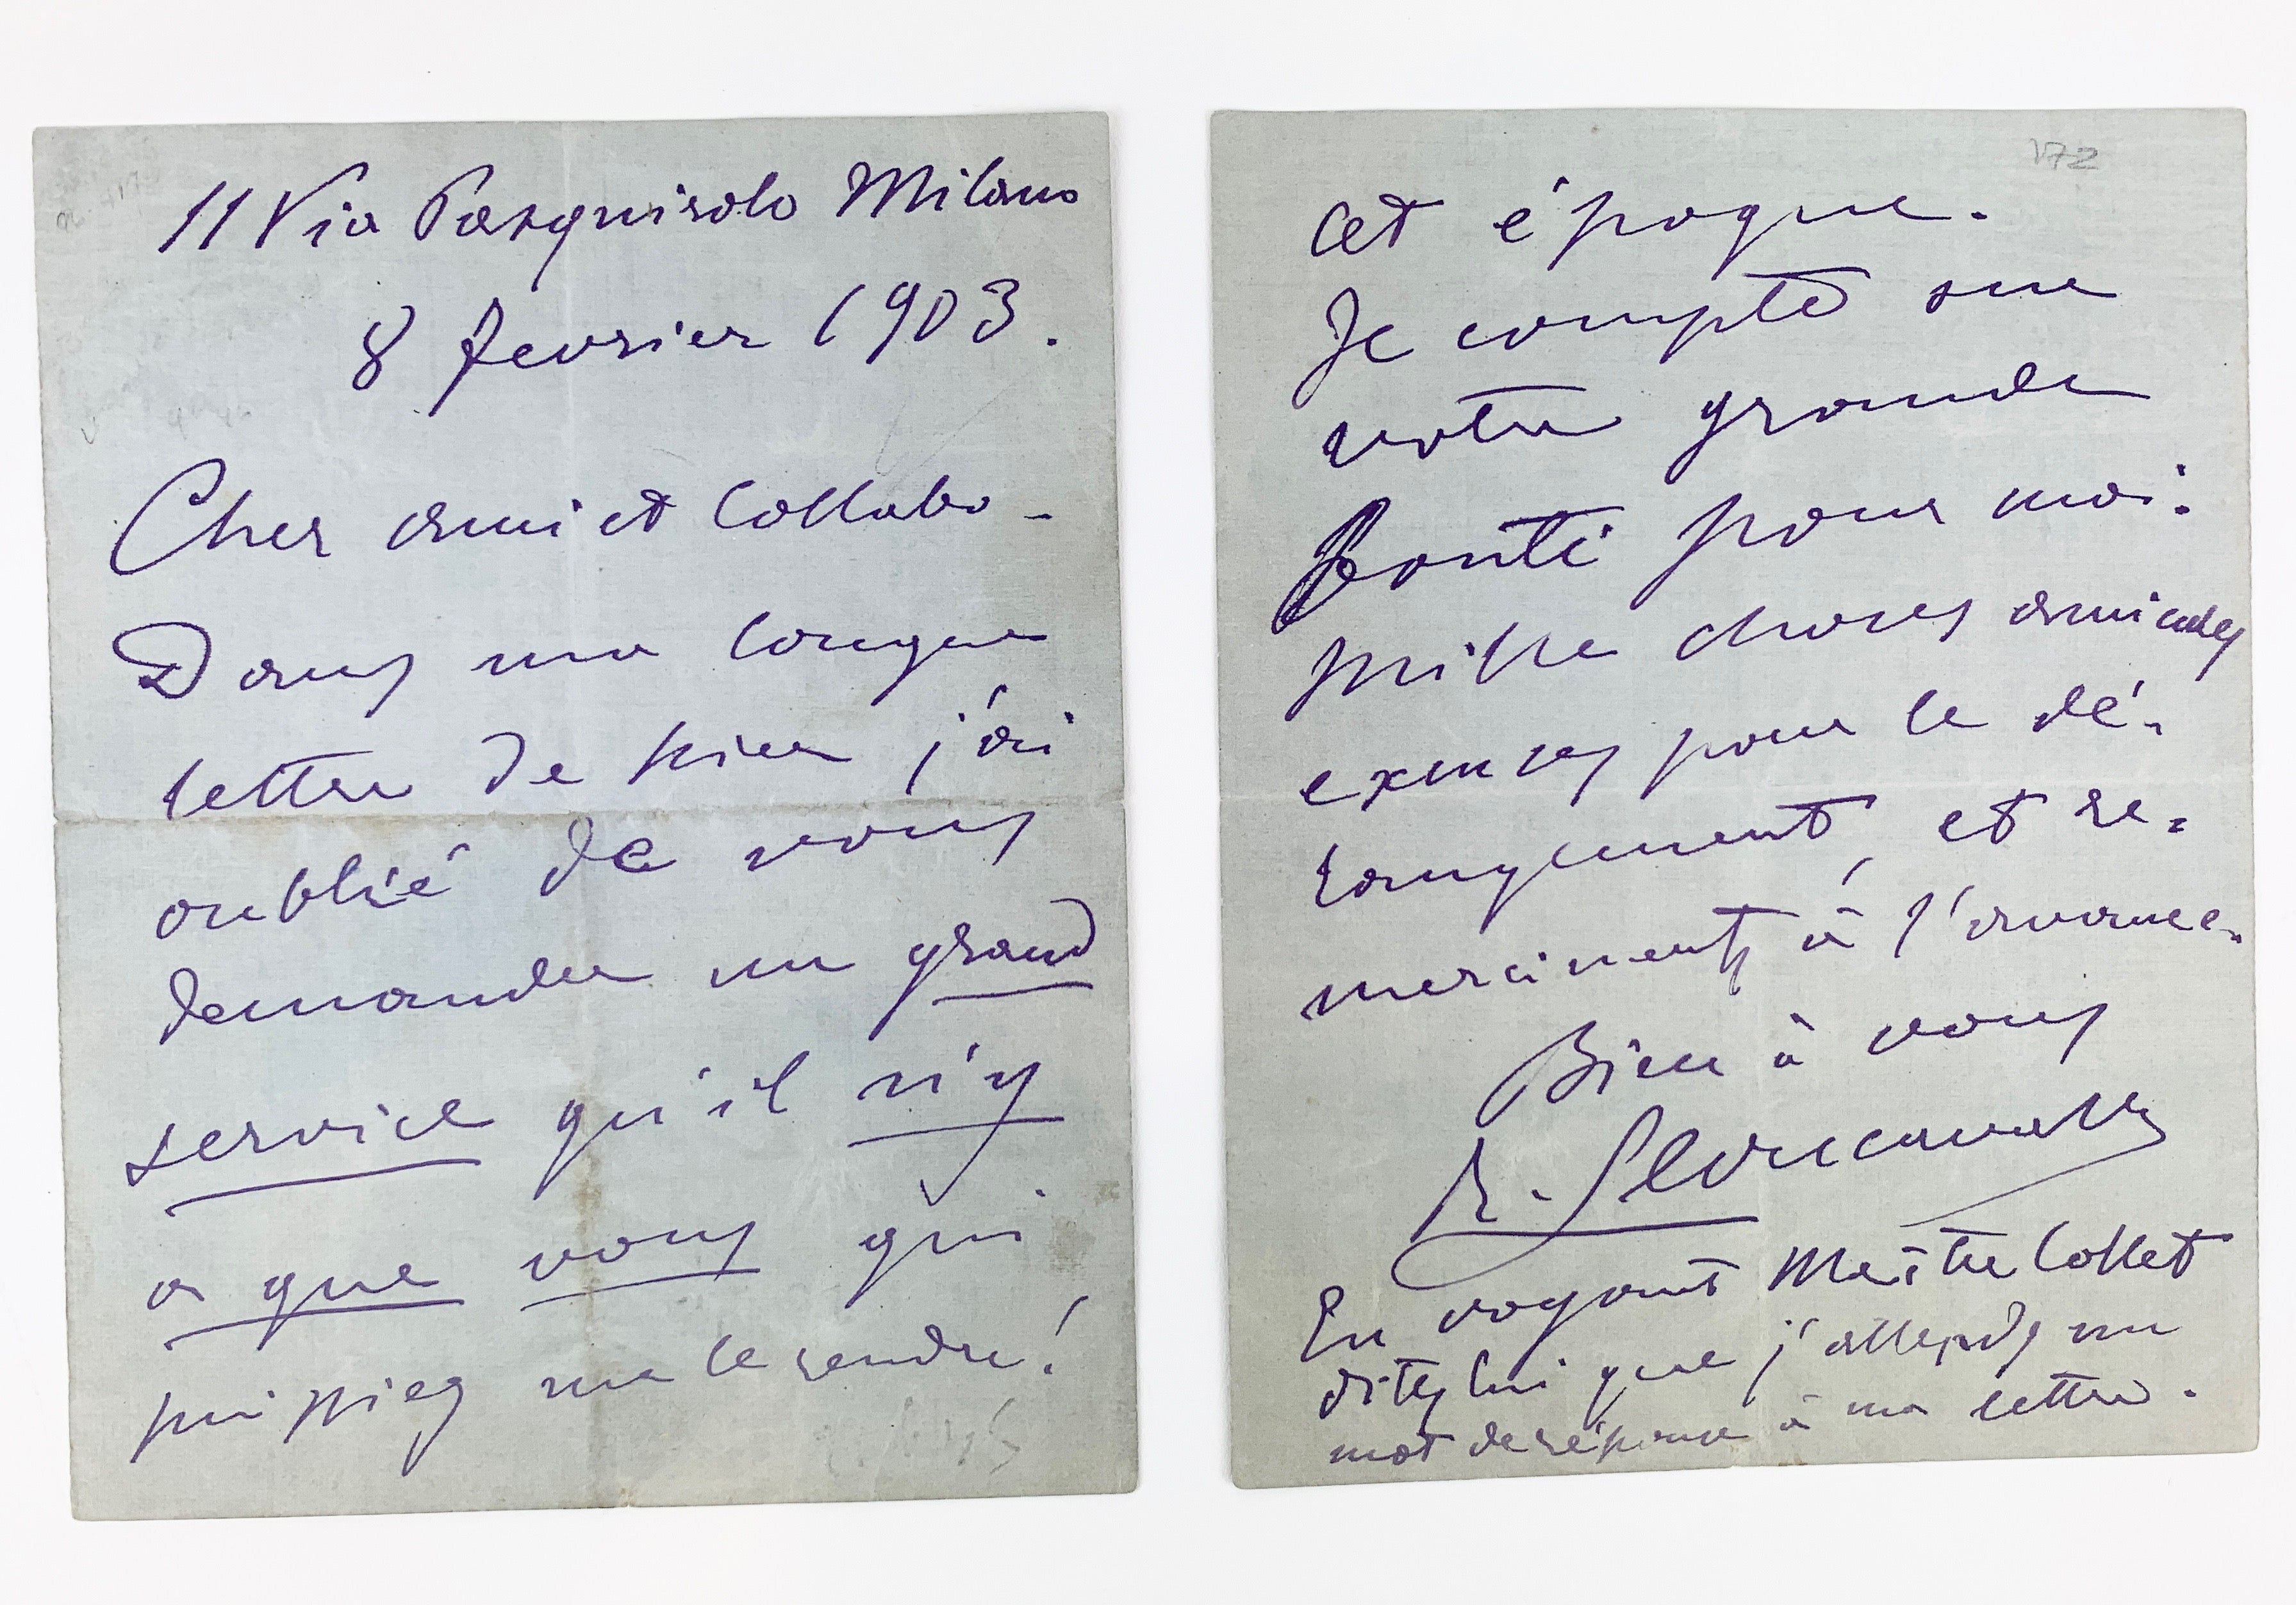 11 Via Pasquirolo Milano
8 fevrier 1903.
Cher ami et Collabo-
Dans ma longue
lettre de hier j'ai
oublié de vous
demander un grand
service qu'il n'y
a que vous qui
puissiez me le rendre!
172
Cet époque.
Je compte sur
votre grande
bonté pour moi.
Mille choses amicales
excuses pour le dé-
rangement, et re-
merciments à l'avance.
Bien à vous
R. Leoncavallo
En voyant Maître Collet
dites lui que j'attends un
mot de réponse à ma lettre.